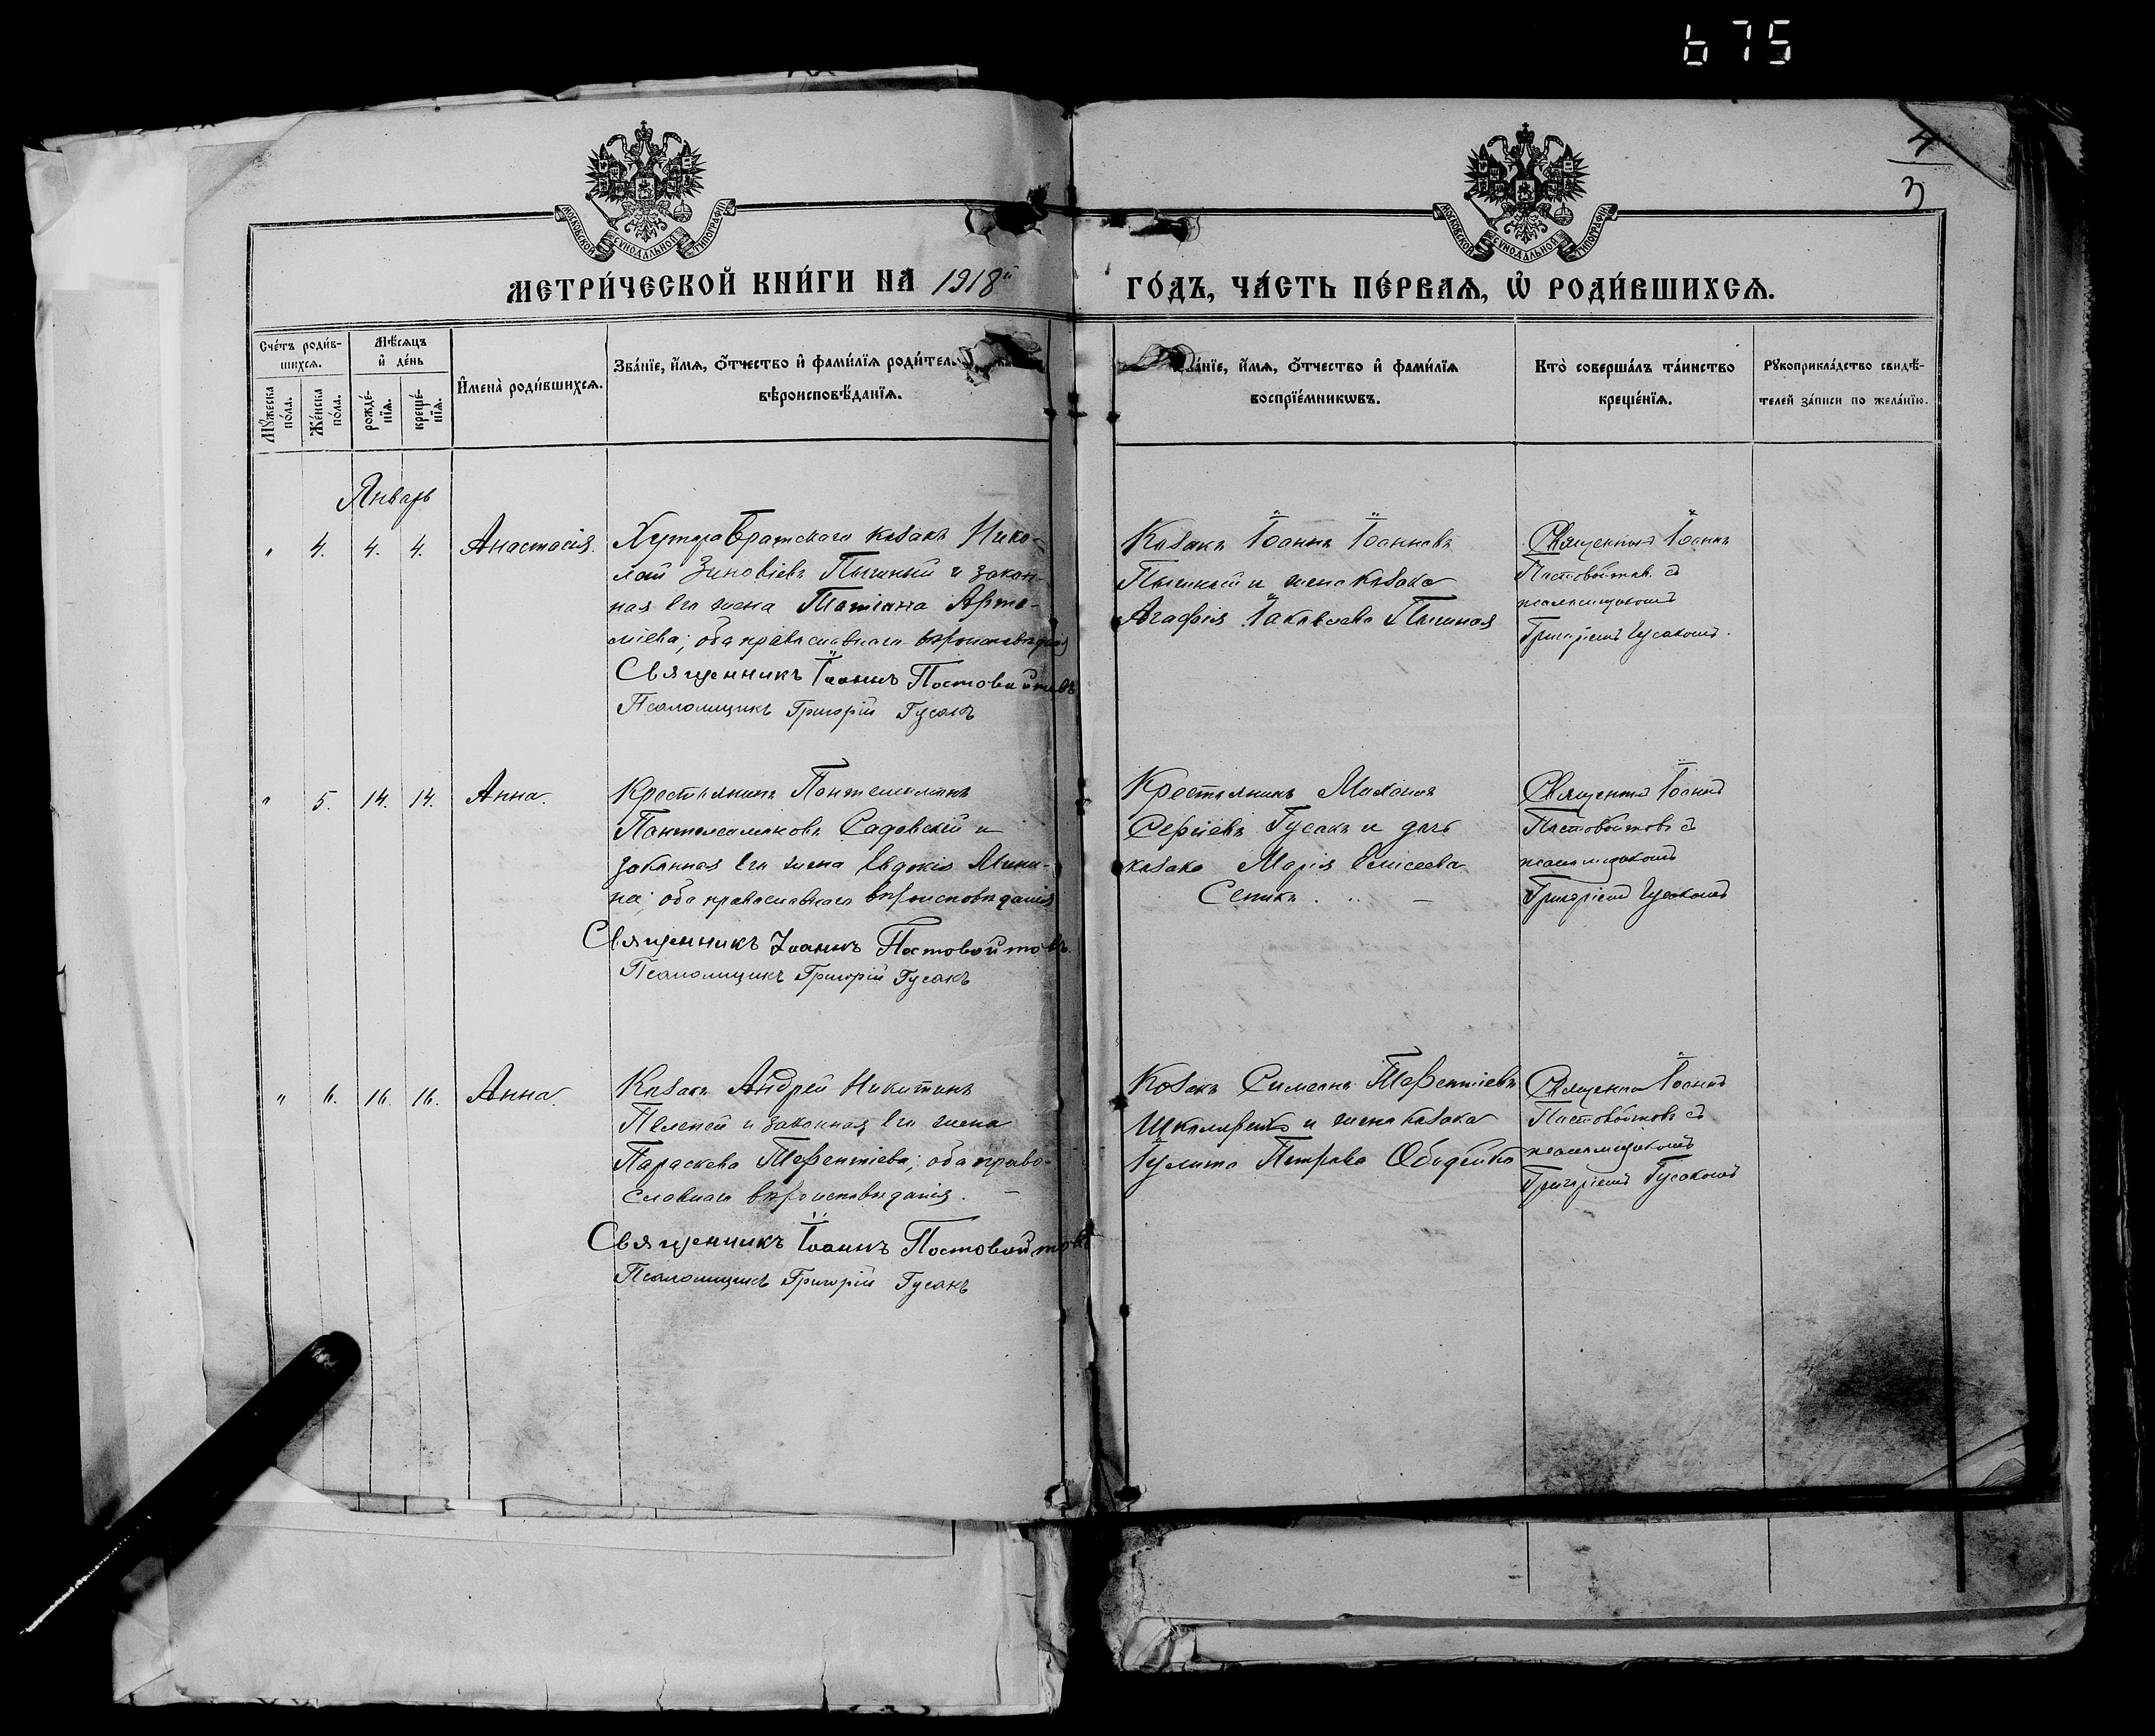 675
4
3
МОСКОВСКОЙ СУНОДАЛЬНОЙ ТИПОГРАФІИ
МОСКОВСКОЙ СУНОДАЛЬНОЙ ТИПОГРАФІИ
МЕТРИ́ЧЕСКОЙ КНИ́ГИ НА 1918й
ГО́ДЪ, ЧА́СТЬ ПЕ́РВАЯ, Ѡ РОДИ́ВШИХСЯ.
Сче́тъ роди́в-
шихся.
Мѣ́сяцъ
и҆ де́нь
Мꙋ́жеска
по́ла.
Же́нска
по́ла.
рожде́-
нїя.
креще́-
нїя.
И҆мена̀ роди́вшихся.
Зва́нїе, и҆́мя, ѻ҆́тчество и҆ фами́лїя роди́тел
вѣроисповѣ́данїя.
а́нїе, и҆́мя, ѻ҆́тчество и҆ фами́лїя
воспрїе́мникѡвъ.
Кто̀ соверша́лъ та́инство
креще́нїя.
Рꙋкоприкла́дство свидѣ́-
телей за́писи по жела́нїю.
Январь
" 4. 4. 4. Анастасія.
Хутора Братскаго казакъ Нико-
лай Зиновіевъ Пышный и закон-
ная его жена Татіана Арте-
міева; оба православнаго вѣроисповѣданія
Священникъ Іоаннъ Постовойтовъ
Псаломщикъ Григорій Гусакъ
Казакъ Іоаннъ Іоанновъ
Пышный и жена казака
Агафія Іаковлева Пышная
Священникъ Іоаннъ
Постовойтов. съ
псаломщикомъ
Григоріемъ Гусакомъ.
" 5. 14. 14. Анна.
Крестьянинъ Пантелеимонъ
Пантелеимоновъ Садовскій и
законная его жена Евдокія Мини-
на; оба православнаго вѣроисповѣданія
Священникъ Іоаннъ Постовойтовъ.
Псаломщикъ Григорій Гусакъ
Крестьянинъ Михаилъ
Сергіевъ Гусакъ и дочь
казака Марія Елисеева
Сеника.
Священникъ Іоаннъ
Постовойтовъ съ
псаломщикомъ
Григоріемъ Гусакомъ
" 6. 16. 16. Анна.
Казакъ Андрей Никитинъ
Пелепей и законная его жена
Параскева Терентіева; оба право-
славнаго вѣроисповѣданія.
Священникъ Іоаннъ Постовойтовъ
Псаломщикъ Григорій Гусакъ
Козакъ Симеонъ Терентіевъ
и жена казака
Іулита Петрова
Священникъ Іоаннъ
Постовойтовъ съ
псаломщикомъ
Григоріемъ Гусакомъ